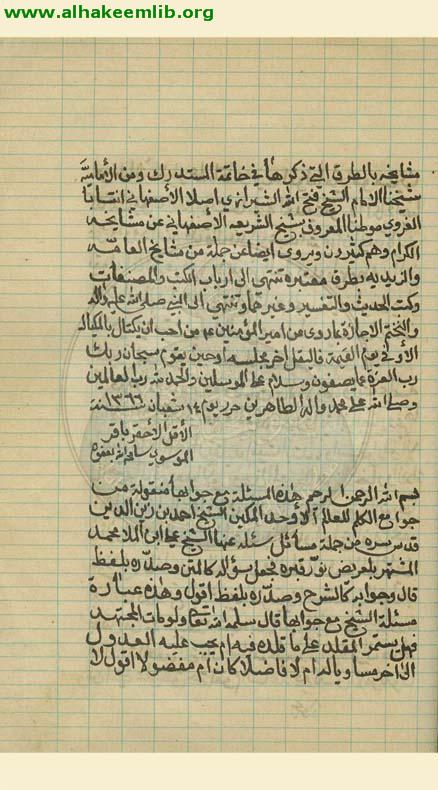 www.alhakeemlib.org
مشايخه بالطرق التي ذكرها في خاتمة المستدرك ومن الأمامية
شيخنا الامام الشيخ فتح الله الشيرازي اصلا الأصفهاني انتسابا
الغروي موطنا المعروف بشيخ الشريعه الأصفهاني عن مشايخه
الكرام وهم كثيرون ويروي ايضا عن جملة من مشايخ العامه
والزيديه بطرق معتبرة تنتهي الى ارباب الكتب والمصنفات
وكتب الحديث والتفسير وغيرهما وتنتهي الى النبي صلى الله عليه واله
ولنختم الاجازة بما روي عن امير المؤمنين ع من احب ان يكتال بالمكيال
الأوفى يوم القيمة فليقل آخر مجلسه او حين يقوم سبحان ربك
رب العزة عما يصفون وسلام على المرسلين والحمد لله رب العالمين
وصلى الله على محمد واله الطاهرين حرر يوم ١٤ شعبان ١٣٦٦ سنة
الأقل الأحقر باقر
الموسوي
بسم الله الرحمن الرحيم هذه المسئلة مع جوابها منقولة من
جوامع الكلم للعالم الأوحد الشيخ احمد بن زين الدين
قدس سره من جملة مسائل سئله عنها الشيخ علي ابن الملا محمد
الشهير فجعل سؤاله كالمتن وصدره بلفظ
قال وجوابه كالشرح وصدره بلفظ اقول وهذه عبارة
مسئلة الشيخ مع جوابها قال سلمه الله تعالى ولو مات المجتهد
فهل يستمر المقلد على ما قلده فيه ام يجب عليه العدول
الى اخر مساويا له ام لا فاضلا كان ام مفضولا اقول لا